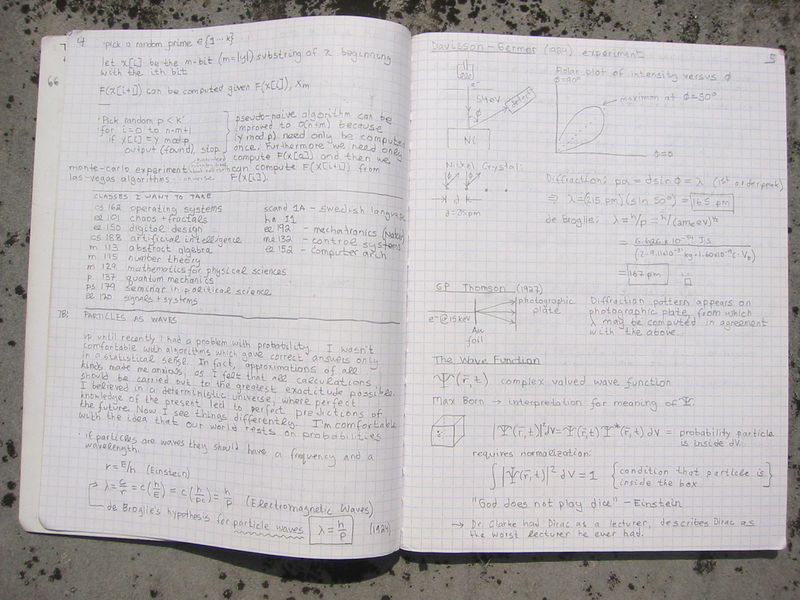 4
'pick a random prime ∈ {1...k}
let x[i] be the m-bit (m=|y|) substring of x beginning
with the ith bit
F(x[i+1]) can be computed given F(x[i]), xm
66
'Pick random p < k'
for i=0 to n-m+1
if x[i] = y mod p
output (found), stop.
pseudo-naive algorithm can be
improved to O(n+m) because
(y mod p) need only be computed
once. Furthermore we need only
compute F(x[0]) and then we
can compute F(x[i+1]) from
F(x[i]).
monte-carlo experiment
las-vegas algorithms
CLASSES I WANT TO TAKE
cs 162 operating systems
ee 101 chaos + fractals
ee 150 digital design
cs 188 artificial intelligence
m 113 abstract algebra
m 115 number theory
m 129 mathematics for physical sciences
p 137 quantum mechanics
ps 179 seminar in political science
ee 120 signals + systems
scand 1A - swedish language
hn 11
ee 192 - mechatronics
me 132 - control systems
ee 152 - computer arch
7B: PARTICLES AS WAVES
up until recently I had a problem with probability. I wasn't
comfortable with algorithms which gave correct answers only
in a statistical sense. In fact, approximations of all
kinds made me anxious, as I felt that all calculations
should be carried out to the greatest exactitude possible.
I believed in a deterministic universe, where perfect
knowledge of the present led to perfect predictions of
the future. Now I see things differently. I'm comfortable
with the idea that our world rests on probabilities
· if particles are waves they should have a frequency and a
wavelength.
r = E/h (Einstein)
λ = c/r = c(h/E) = c(h/pc) = h/p (Electromagnetic Waves)
de Broglie's hypothesis for particle waves λ = h/p (1924)
Davisson - Germer (1927) experiment
5
Polar plot of intensity versus ϕ
ϕ=90°
e⁻
54eV
detect
maximum at ϕ=50°
Ni
ϕ=0
Nickel Crystal:
d
d=215pm
Diffraction: pd = d sin ϕ = λ (1st order peak)
⇒ λ = (215 pm)(sin 50°) = 165 pm
de Broglie: λ = h/p = h/(2meV)^½
= 6.626×10⁻³⁴ J·s
= 167 pm
GP Thomson (1927)
photographic
plate
e⁻@15keV
Au
foil
Diffraction pattern appears on
photographic plate, from which
λ may be computed in agreement
with the above.
The Wave Function
Ψ(r̄,t) complex valued wave function
Max Born → interpretation for meaning of Ψ.
|Ψ(r̄,t)|²dV = Ψ(r̄,t) Ψ*(r̄,t) dV = probability particle
is inside dV.
requires normalization:
∫|Ψ(r̄,t)|² dV = 1 {condition that particle is
inside the box}
"God does not play dice" - Einstein
→ Dr. Clarke had Dirac as a lecturer, describes Dirac as
the worst lecturer he ever had.